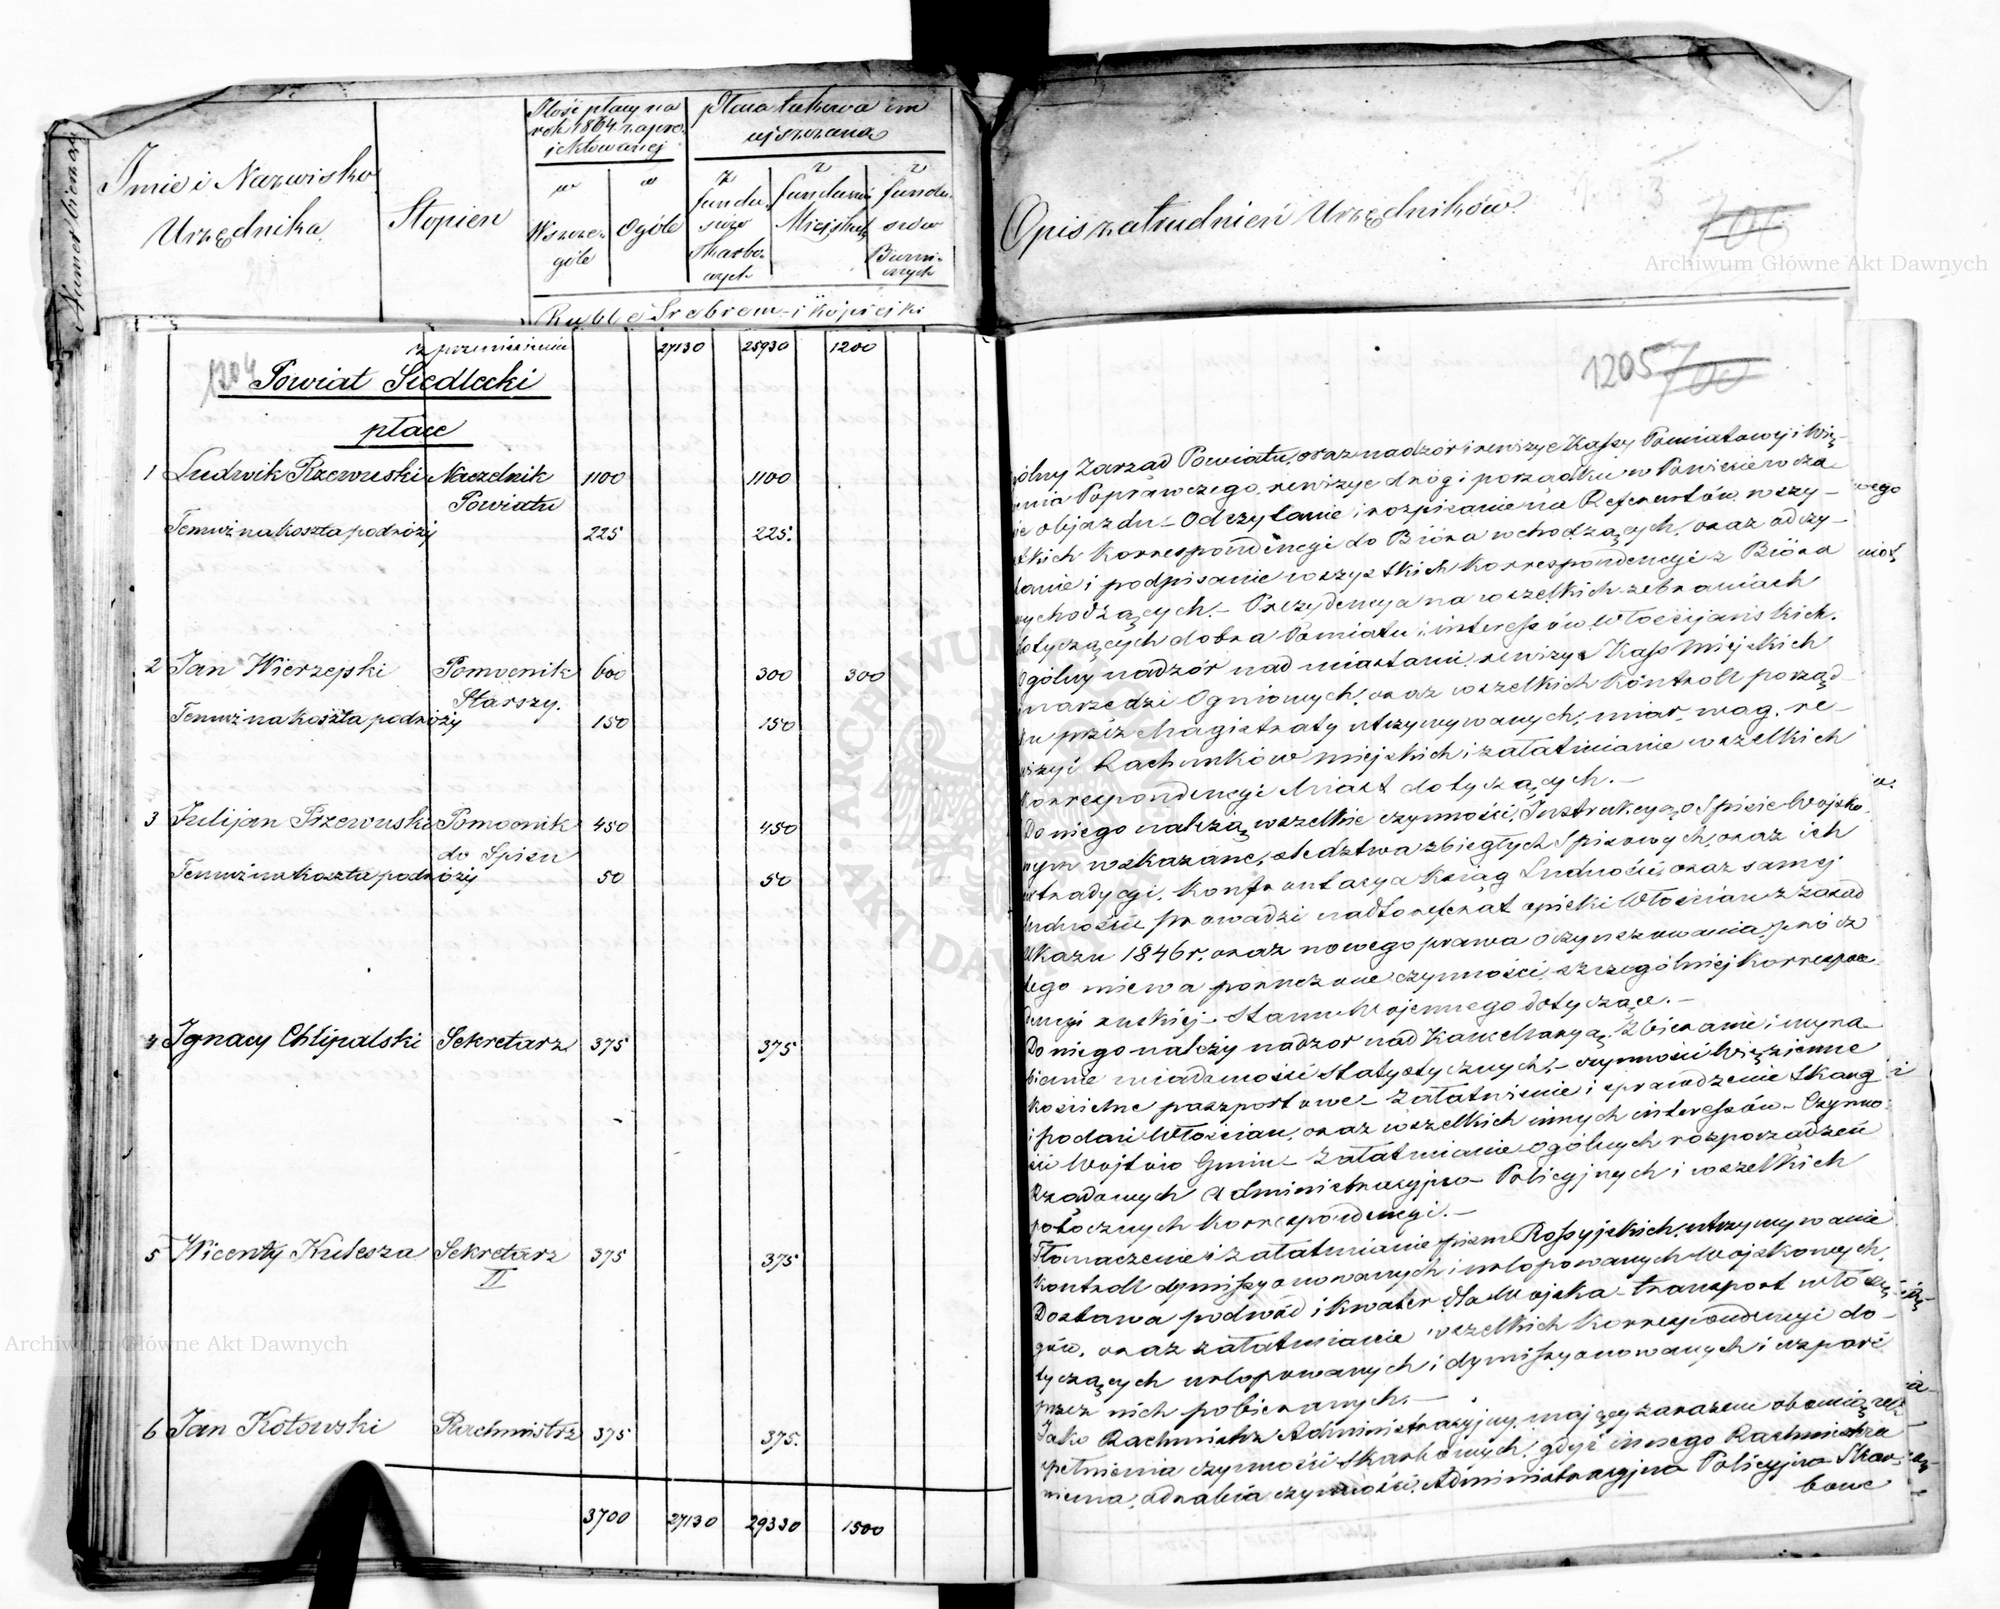 Numer bieżący
Imie i Nazwisko
Urzędnika
Stopien
Ilość płacy na
rok 1864 zapro-
jektowanej
w
Wszcze-
góle
w
Ogóle
Płaca takowa im
uiszczana
z
fundu-
szów
Skarbo-
wych
z
funduszów
Miejskich
z
fundu-
szów
Ruble Srebrem i kopiejki
Opis zatrudnień Urzędników
3
700
Archiwum Główne Akt Dawnych
z przeniesienia 27130 25930 1200
1204 Powiat Siedlecki
płace
1 Ludwik Rzewuski Naczelnik 1100 1100
Powiatu
Temuż na koszta podróży 225 225.
2 Jan Wierzejski Pomocnik 600 300 300
Starszy.
Temuż na koszta podróży 150 150
3 Julijan Rzewuski Pomocnik 450 450
do Spisu
Temuż na koszta podróży 50 50
4 Ignacy Chlipalski Sekretarz 375 375
5 Wicenty Kulesza Sekretarz 375 375
II
6 Jan Kotowski Rachmistrz 375 375.
3700 27130 29330 1500
Archiwum Główne Akt Dawnych
ARCHIWUM AKT DAWNYCH
1205 700
gólny Zarząd Powiatu, oraz nadzór i rewizye Kassy Powiatowej i Wię-
nia Poprawczego, rewizye dróg i porządku w Powiecie w cza-
ie objazdu – Odczytanie i rozpisanie na Referentów wszy-
stkich Korrespondencyi do Bióra wchodzących, oraz odczy-
tanie i podpisanie wszystkich Korrespondencyi z Bióra
wychodzących. – Prezydencya na wszelkich zebraniach
dotyczących dobra Powiatu i interessów Włościjańskich.
Ogólny nadzór nad miastami, rewizye Kass Miejskich
i narzędzi Ogniowych, oraz wszelkich Kontroll porząd-
ku przez Magistraty utrzymywanych, miar, wag, re-
wizyi Rachunków miejskich i załatwianie wszelkich
Korrespondencyi Miast dotyczących. –
Do niego należą wszelkie czynności, Instrukcyą o Spisie Wojsko-
wym wskazane, śledztwa zbiegłych Spisowych, oraz ich
extradycyi, Konfrontacya Ksiąg Ludności, oraz samej
ludności prowadzi nadto referat opieki Włościan z zasad
Ukazu 1846 r. oraz nowego prawa oczynszowania, prócz
tego miewa poruczone czynności szczególniej Korrespon-
dencyi ruskiej – Stanu Wojennego dotyczące. –
Do niego należy nadzór nad Kancellaryą, Zbieranie i wyra-
bianie wiadomości statystycznych, – czynności Więzienne
Kościelne paszportowe – Załatwienie i sprawdzenie skarg
i podań Włościan, oraz wszelkich innych interessów – Czynno-
ści Wójtów Gmin – Załatwianie ogólnych rozporządzeń
Rządowych Administracyjno Policyjnych i wszelkich
potocznych Korrespondencyi. –
Tłomaczenie i załatwianie pism Rossyjskich, utrzymywanie
Kontroll dymissyonowanych i urlopowanych Wojskowych,
Dostawa podwód i kwater dla Wojska – transport włóczę-
gów, oraz załatwianie wszelkich Korrespondencyi do-
tyczących urlopowanych i dymissyonowanych i wsparć
przez nich pobieranych. –
Jako Rachmistrz Administracyjny, mający zarazem obowiązek
spełnienia czynności Skarbowych, gdyż innego Rachmistrza
niema, odrabia czynności, Administracyjno Policyjno Skar-
bowe